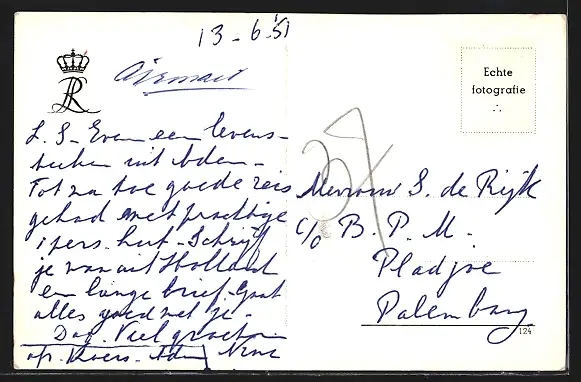 13-6-'51
Airmail
RL
Echte
fotografie
L. S- Even een levens-
teeken uit Aden-
Tot na toe goede reis
gehad met prachtige
1 pers. hut- Schrijf
je van uit Holland
en lange brief. Gaat
alles goed met je-
Dag. Veel groeten
op. Koers. Aden
Mevrouw S. de Rijk
c/o B. P. M.
Pladjoe
Palembang
37
124